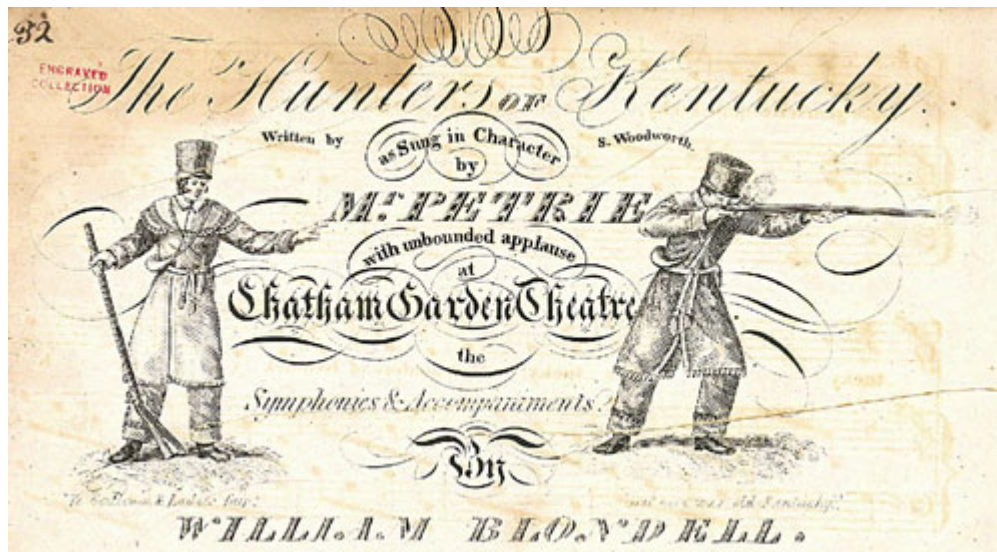 32
ENGRAVED
COLLECTION
The Hunters OF Kentucky.
Written by
as Sung in Character
S. Woodworth.
by
Mr. PETRIE
with unbounded applause
at
Chatham Garden Theatre
the
Symphonies & Accompaniments
By
"Ye Gentlemen & Ladies fair"
old Kentucky"
WILLIAM BLONDELL.